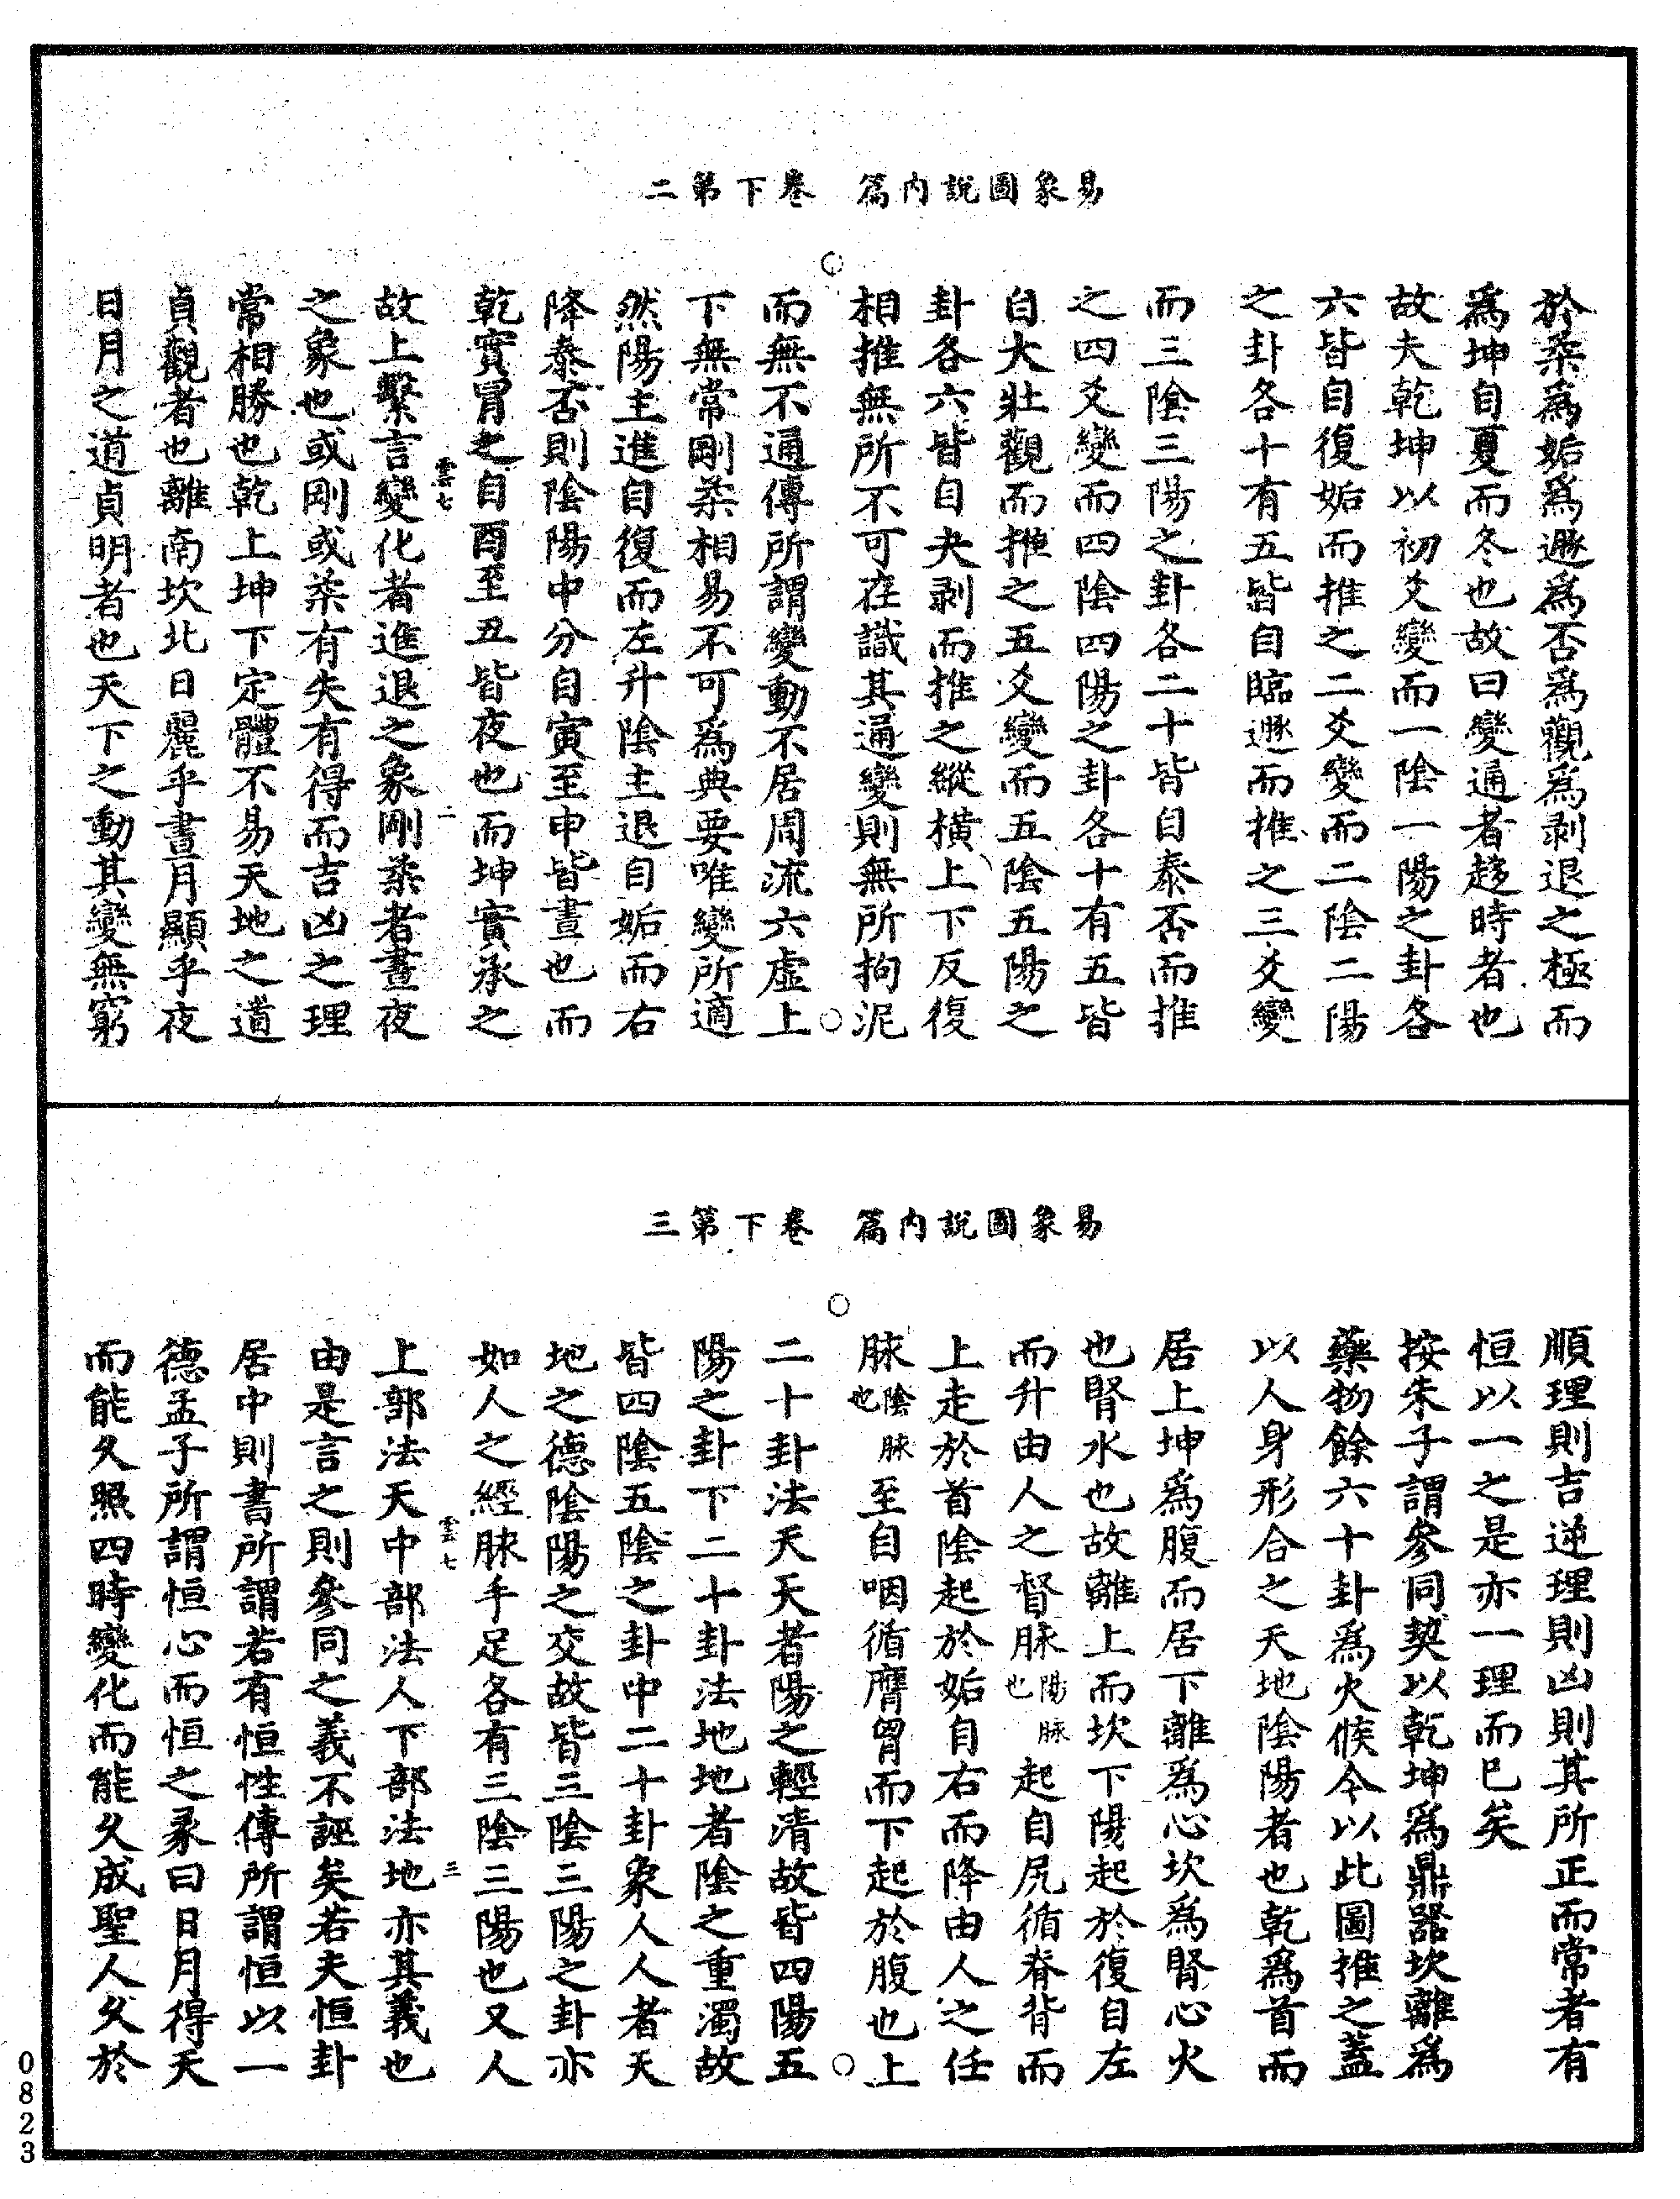 易象圖說內篇　卷下第二
於柔爲姤爲遯爲否爲觀爲剥退之極而
爲坤自夏而冬也故曰變通者趍時者也
故夫乾坤以初爻變而一陰一陽之卦各
六皆自復姤而推之二爻變而二陰二陽
之卦各十有五皆自臨遯而推之三爻變
而三陰三陽之卦各二十皆自泰否而推
之四爻變而四陰四陽之卦各十有五皆
自大壯觀而推之五爻變而五陰五陽之
卦各六皆自夬剥而推之縱橫上下反復
相推無所不可在識其通變則無所拘泥
而無不通傳所謂變動不居周流六虛上
下無常剛柔相易不可爲典要唯變所適
然陽主進自復而左升陰主退自姤而右
降泰否則陰陽中分自寅至申皆晝也而
乾實冐之自酉至丑皆夜也而坤實承之
雲七　二
故上繫言變化者進退之象剛柔者晝夜
之象也或剛或柔有失有得而吉凶之理
常相勝也乾上坤下定體不易天地之道
貞觀者也離南坎北日麗乎晝月顯乎夜
日月之道貞明者也天下之動其變無窮
易象圖說內篇　卷下第三
順理則吉逆理則凶則其所正而常者有
恒以一之是亦一理而巳矣
按朱子謂參同契以乾坤爲鼎器坎離爲
藥物餘六十卦爲火候今以此圖推之蓋
以人身形合之天地陰陽者也乾爲首而
居上坤爲腹而居下離爲心坎爲腎心火
也腎水也故離上而坎下陽起於復自左
而升由人之督脉陽脉也起自尻循脊背而
上走於首陰起於姤自右而降由人之任
脉陰脉也至自咽循膺胷而下起於腹也上
二十卦法天天者陽之輕清故皆四陽五
陽之卦下二十卦法地地者陰之重濁故
皆四陰五陰之卦中二十卦象人人者天
地之德陰陽之交故皆三陰三陽之卦亦
如人之經脉手足各有三陰三陽也又人
雲七　三
上部法天中部法人下部法地亦其義也
由是言之則參同之義不誣矣若夫恒卦
居中則書所謂若有恒性傳所謂恒以一
德孟子所謂恒心而恒之彖曰日月得天
而能久照四時變化而能久成聖人久於
0823